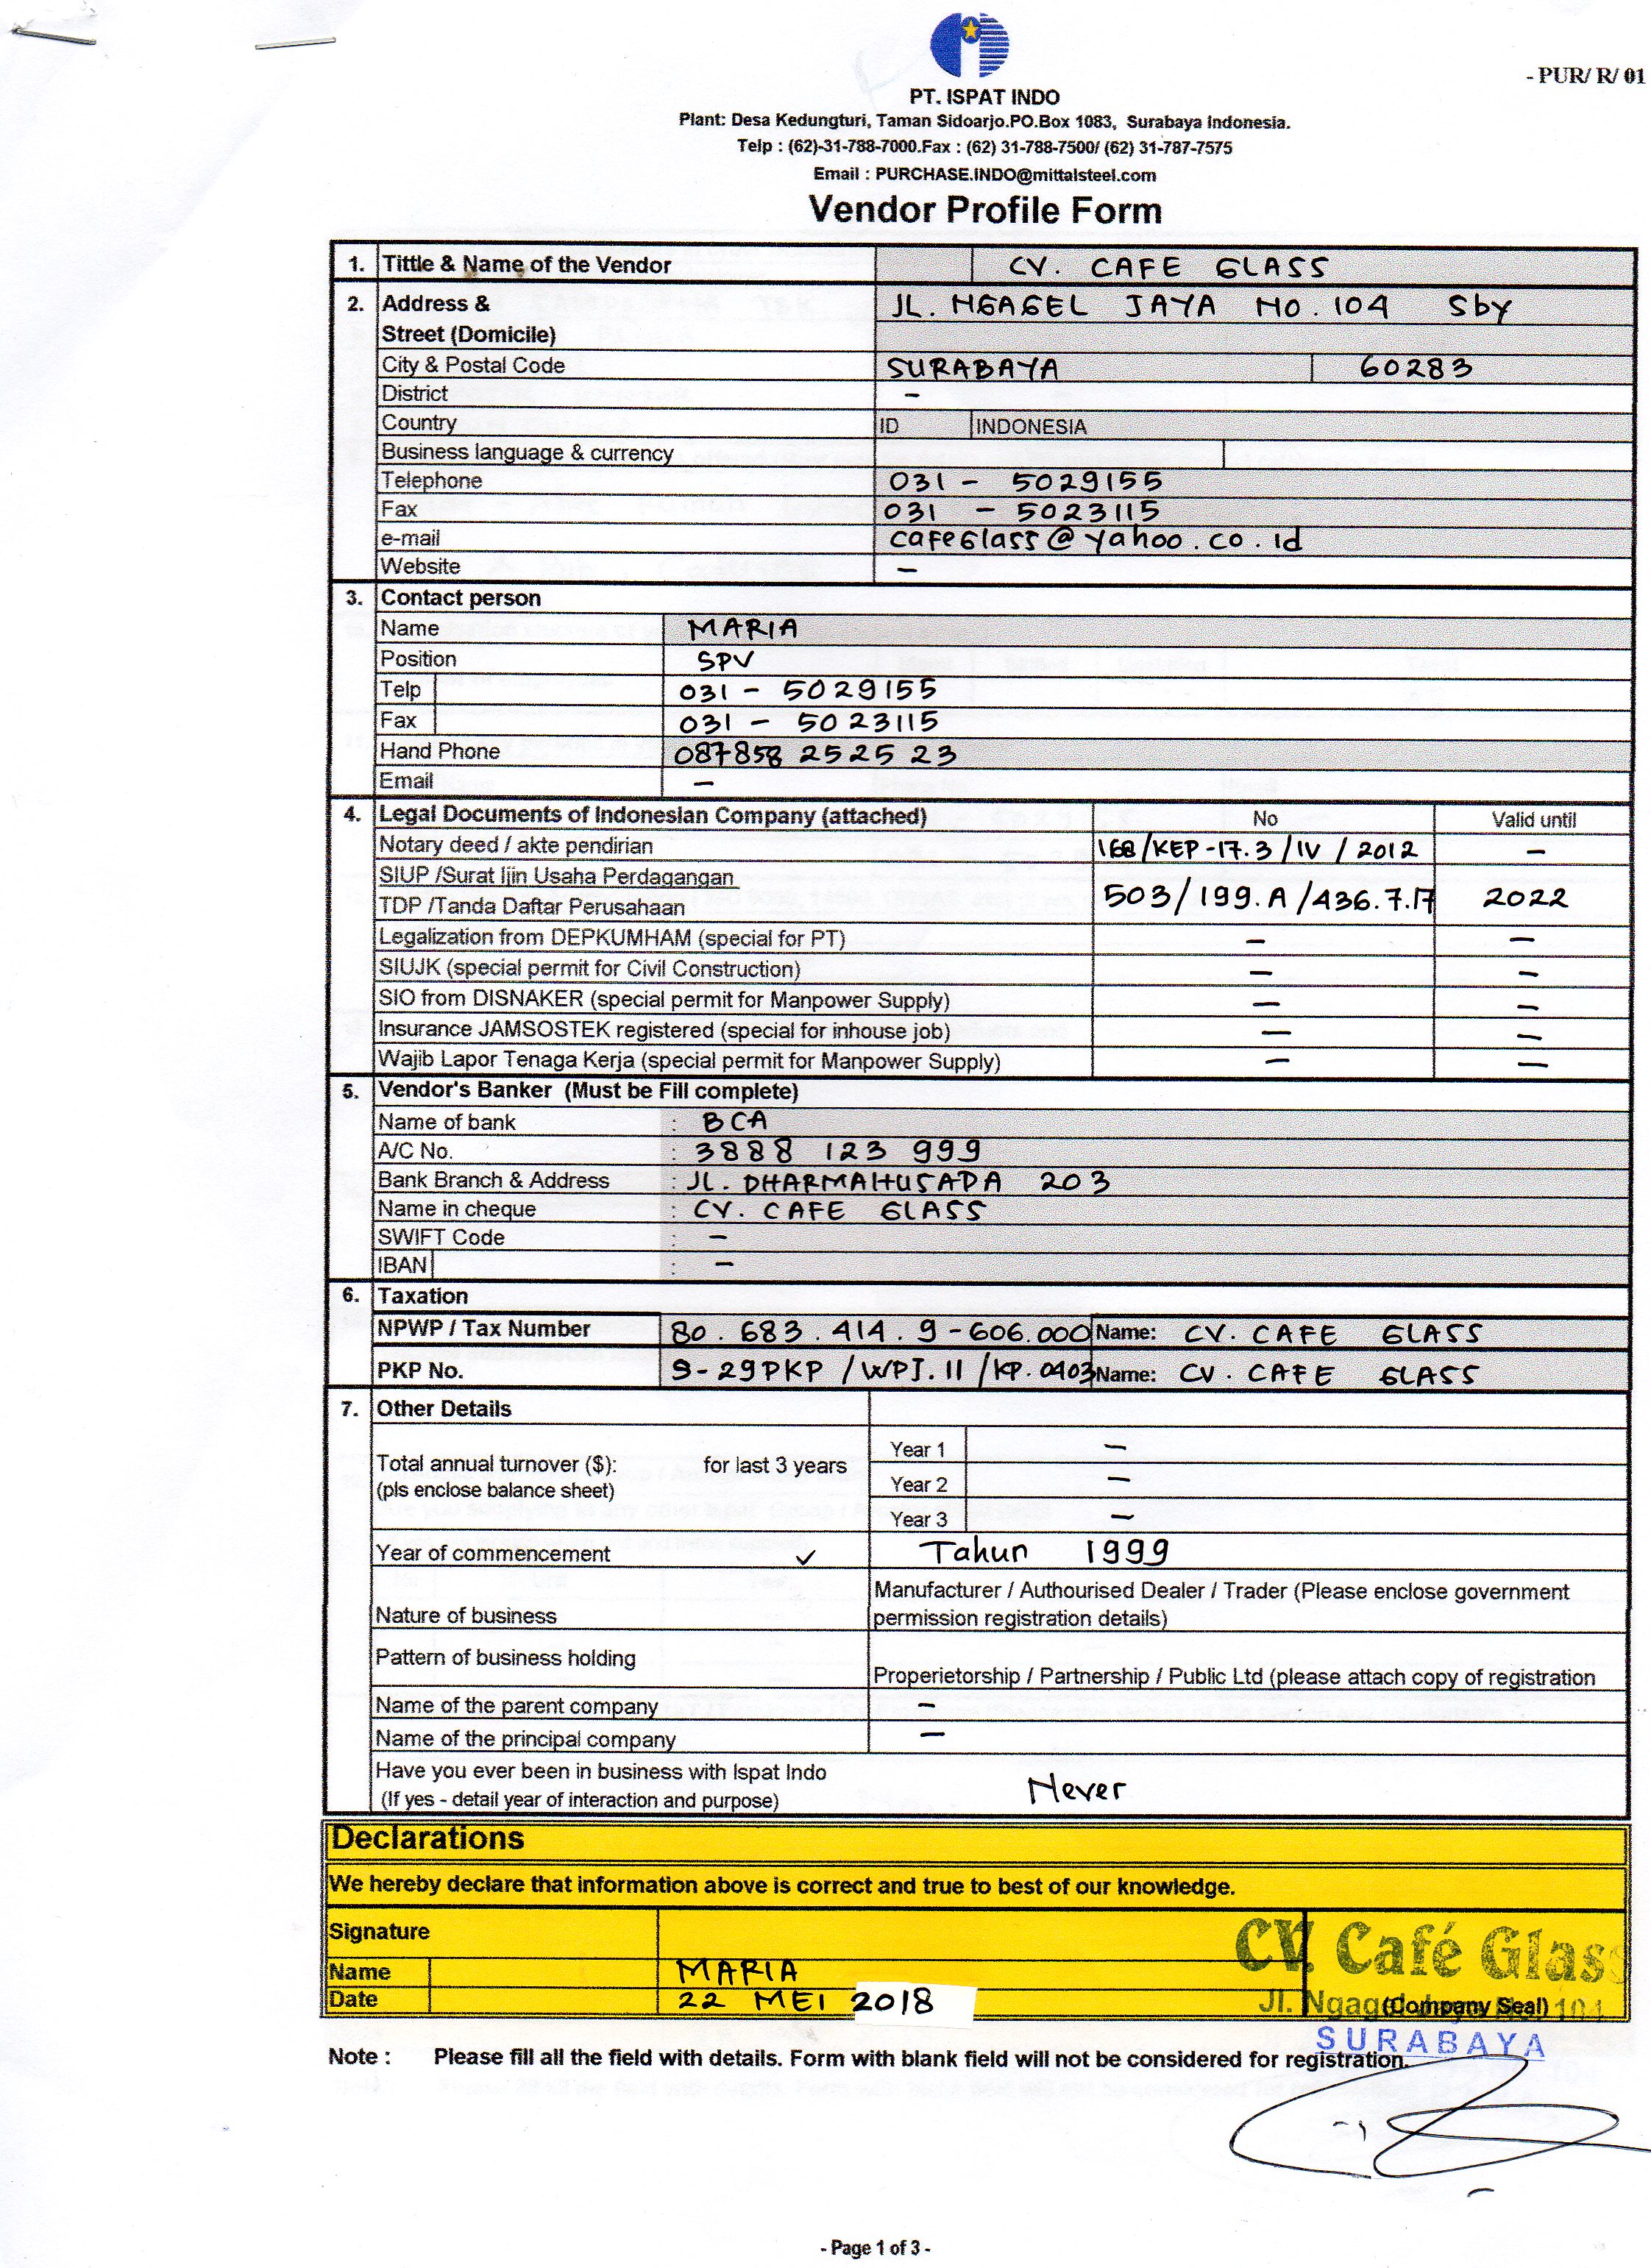 - PUR/ R/ 01
PT. ISPAT INDO
Plant: Desa Kedungturi, Taman Sidoarjo.PO.Box 1083, Surabaya Indonesia.
Telp : (62)-31-788-7000.Fax : (62) 31-788-7500/ (62) 31-787-7575
Email : PURCHASE.INDO@mittalsteel.com
Vendor Profile Form
1. Tittle & Name of the Vendor CV. CAFE GLASS
2. Address & JL. NGAGEL JAYA NO. 104 Sby
Street (Domicile)
City & Postal Code SURABAYA 60283
District –
Country ID INDONESIA
Business language & currency
Telephone 031 - 5029155
Fax 031 - 5023115
e-mail cafeGlass@yahoo.co.id
Website –
3. Contact person
Name MARIA
Position SPV
Telp 031 - 5029155
Fax 031 - 5023115
Hand Phone 087858 2525 23
Email –
4. Legal Documents of Indonesian Company (attached) No Valid until
Notary deed / akte pendirian 168/KEP-17.3/IV/2012 –
SIUP /Surat Ijin Usaha Perdagangan
TDP /Tanda Daftar Perusahaan 503/199.A/436.7.17 2022
Legalization from DEPKUMHAM (special for PT) – –
SIUJK (special permit for Civil Construction) – –
SIO from DISNAKER (special permit for Manpower Supply) – –
Insurance JAMSOSTEK registered (special for inhouse job) – –
Wajib Lapor Tenaga Kerja (special permit for Manpower Supply) – –
5. Vendor's Banker (Must be Fill complete)
Name of bank : BCA
A/C No. : 3888 123 999
Bank Branch & Address : JL. DHARMAHUSADA 203
Name in cheque : CV. CAFE GLASS
SWIFT Code : –
IBAN : –
6. Taxation
NPWP / Tax Number 80.683.414.9-606.000 Name: CV. CAFE GLASS
PKP No. S-29PKP/WPJ.11/KP.0403 Name: CV. CAFE GLASS
7. Other Details
Total annual turnover ($): for last 3 years
(pls enclose balance sheet)
Year 1 –
Year 2 –
Year 3 –
Year of commencement ✓ Tahun 1999
Nature of business Manufacturer / Authourised Dealer / Trader (Please enclose government
permission registration details)
Pattern of business holding
Properietorship / Partnership / Public Ltd (please attach copy of registration
Name of the parent company –
Name of the principal company –
Have you ever been in business with Ispat Indo
(If yes - detail year of interaction and purpose) Never
Declarations
We hereby declare that information above is correct and true to best of our knowledge.
Signature
CV. Café Glass
Name MARIA
Date 22 MEI 2018
Jl. Ngagel Jaya No. 104
(Company Seal)
SURABAYA
Note : Please fill all the field with details. Form with blank field will not be considered for registration.
- Page 1 of 3 -